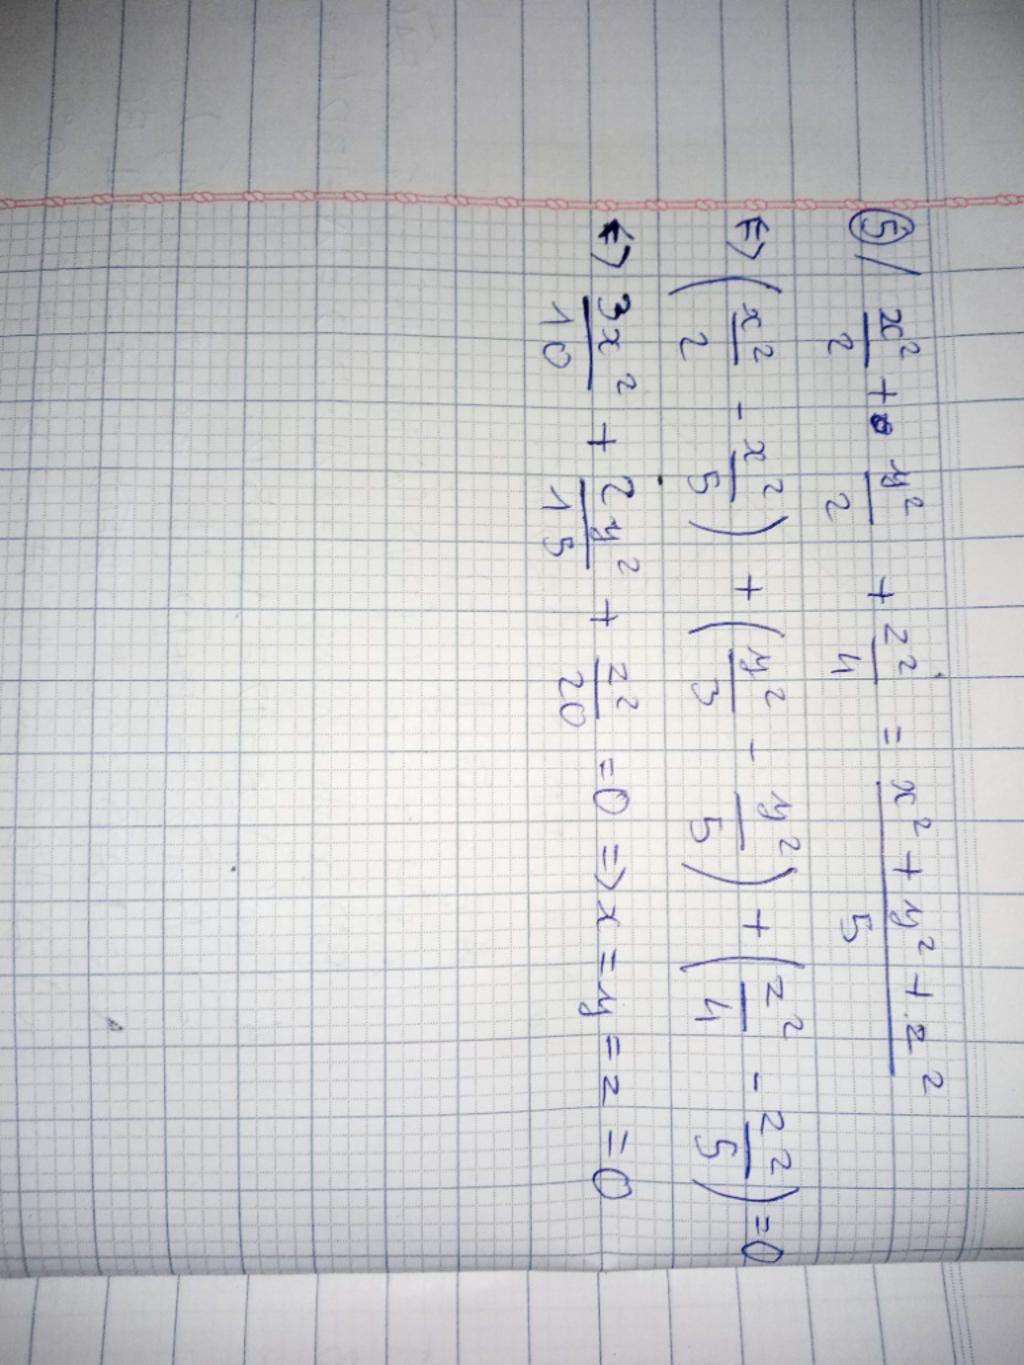 ⑤/ x²/2 + y²/2 + z²/4 = (x² + y² + z²)/5
<=> (x²/2 - x²/5) + (y²/3 - y²/5) + (z²/4 - z²/5) = 0
<=> 3x²/10 + 2y²/15 + z²/20 = 0 => x = y = z = 0